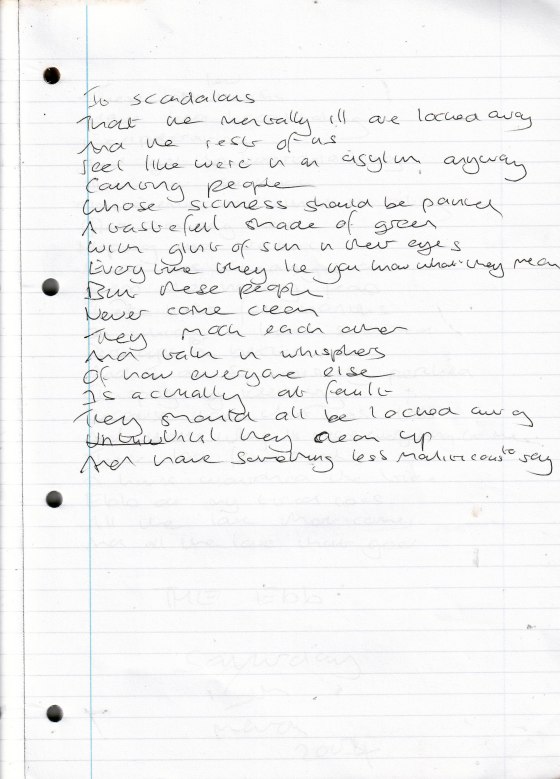 Its scandalous
That the mentally ill are locked away
And the rest of us
feel like we're in an asylum anyway
Among people
Whose sickness should be painted
A tasteful shade of green
With glint of sun in their eyes
Everytime they lie you know what they mean
But these people
Never come clean
They mock each other
And talk in whisphers
Of how everyone else
Is actually at fault
They should all be locked away
Until they clean up
And have something less malicious to say
THE Ebb
Saturday
March